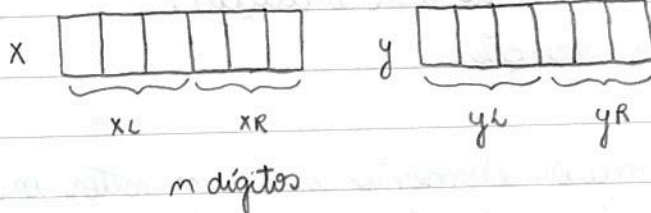 x y
xL xR yL yR
n dígitos